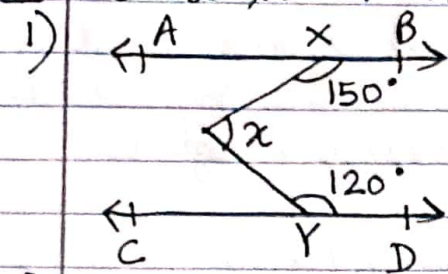 1)
A X B
150°
x
120°
C Y D